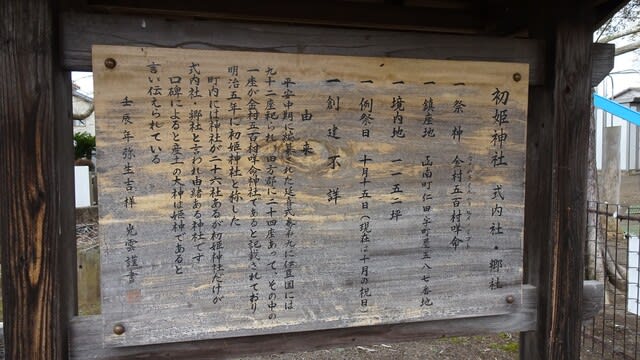 初姫神社 式内社・郷社
一 祭神 金村五百村咲命
一 鎮座地 函南町仁田字町豊五八七番地
一 境内地 一一五二坪
一 例祭日 十月十五日(現在は十月の祝日)
一 創建不詳
由来
平安中期に編算された延喜式巻第九に伊豆国には
九十二座祀られ、田方郡に二十四座あって、その中の
一座が金村五百村咲命神社であると記載されており
明治五年に初姫神社と称した
町内には神社が二十六社あるが初姫神社だけが
式内社・郷社と云われ由緒ある神社です
口碑によると産土の大神は姫神であると
言い伝えられている
壬辰年弥生吉祥 光雲謹書